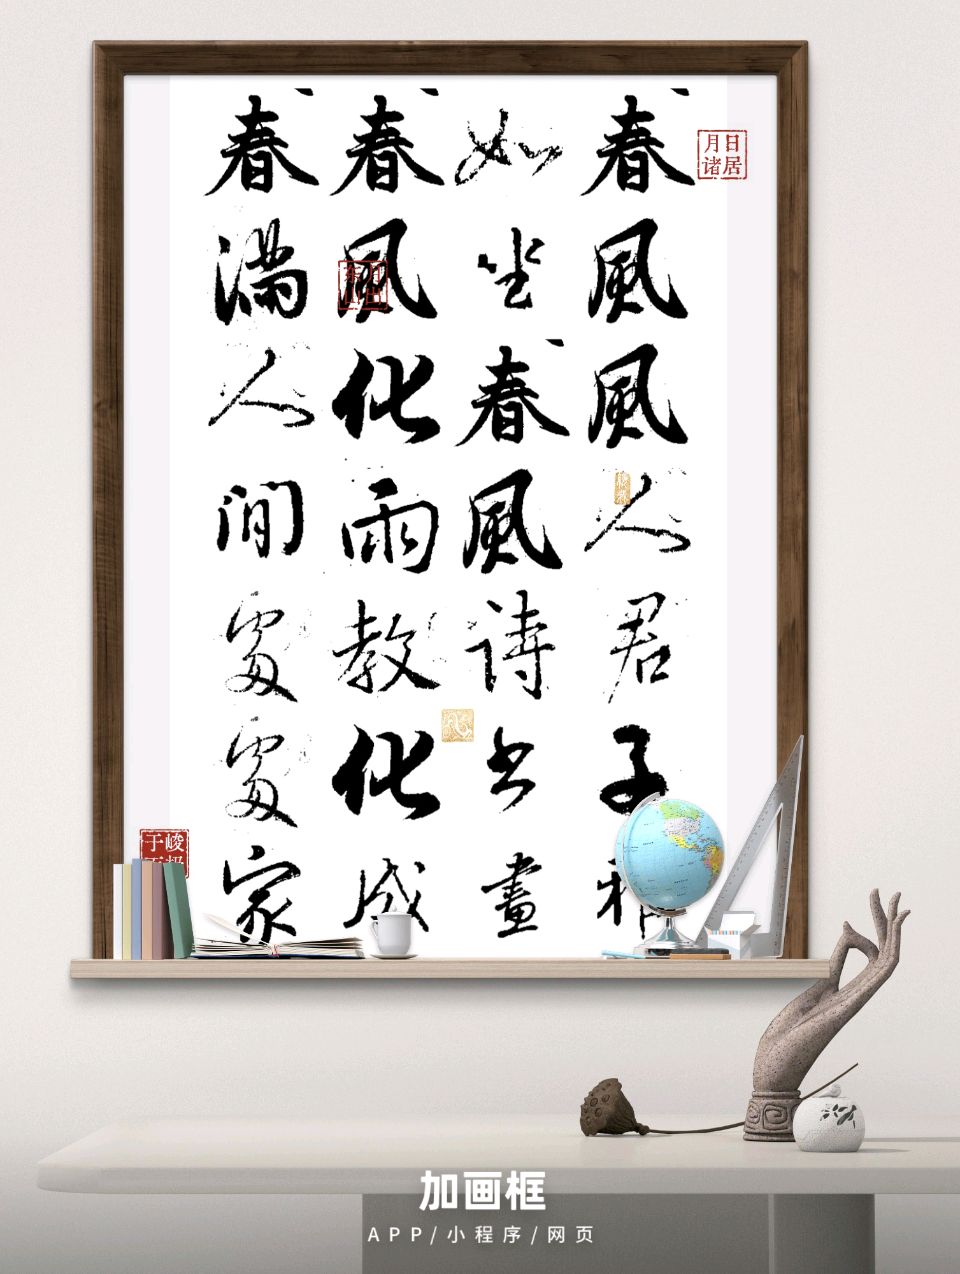 春風風人君子
如坐春風詩书畫
春風化雨教化成
春滿人間處處家
日居
月诸
峻极
于
加画框
APP/小程序/网页